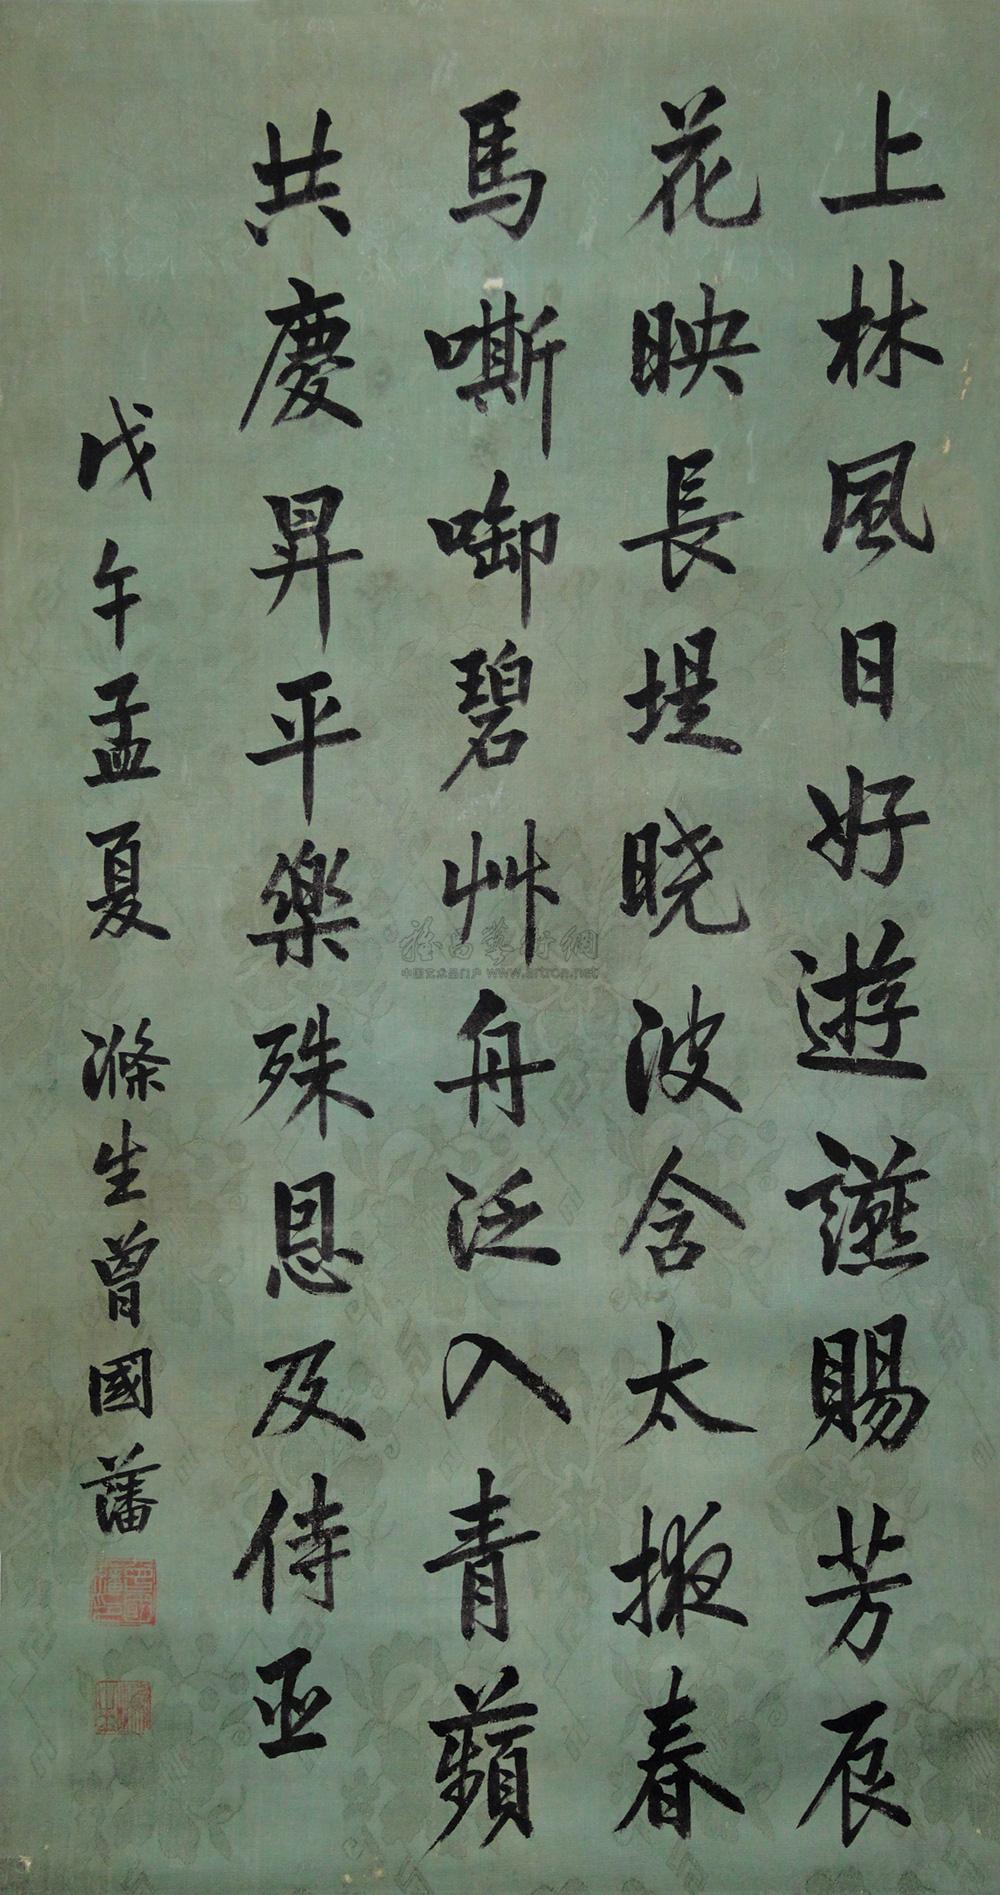 上林風日好遊讌賜芳辰
花映長堤晓波含太掖春
馬嘶啣碧艸舟泛入青蘋
共慶昇平樂殊恩及侍臣
戊午孟夏 滌生曾國藩
中国艺术品门户 www.artron.net